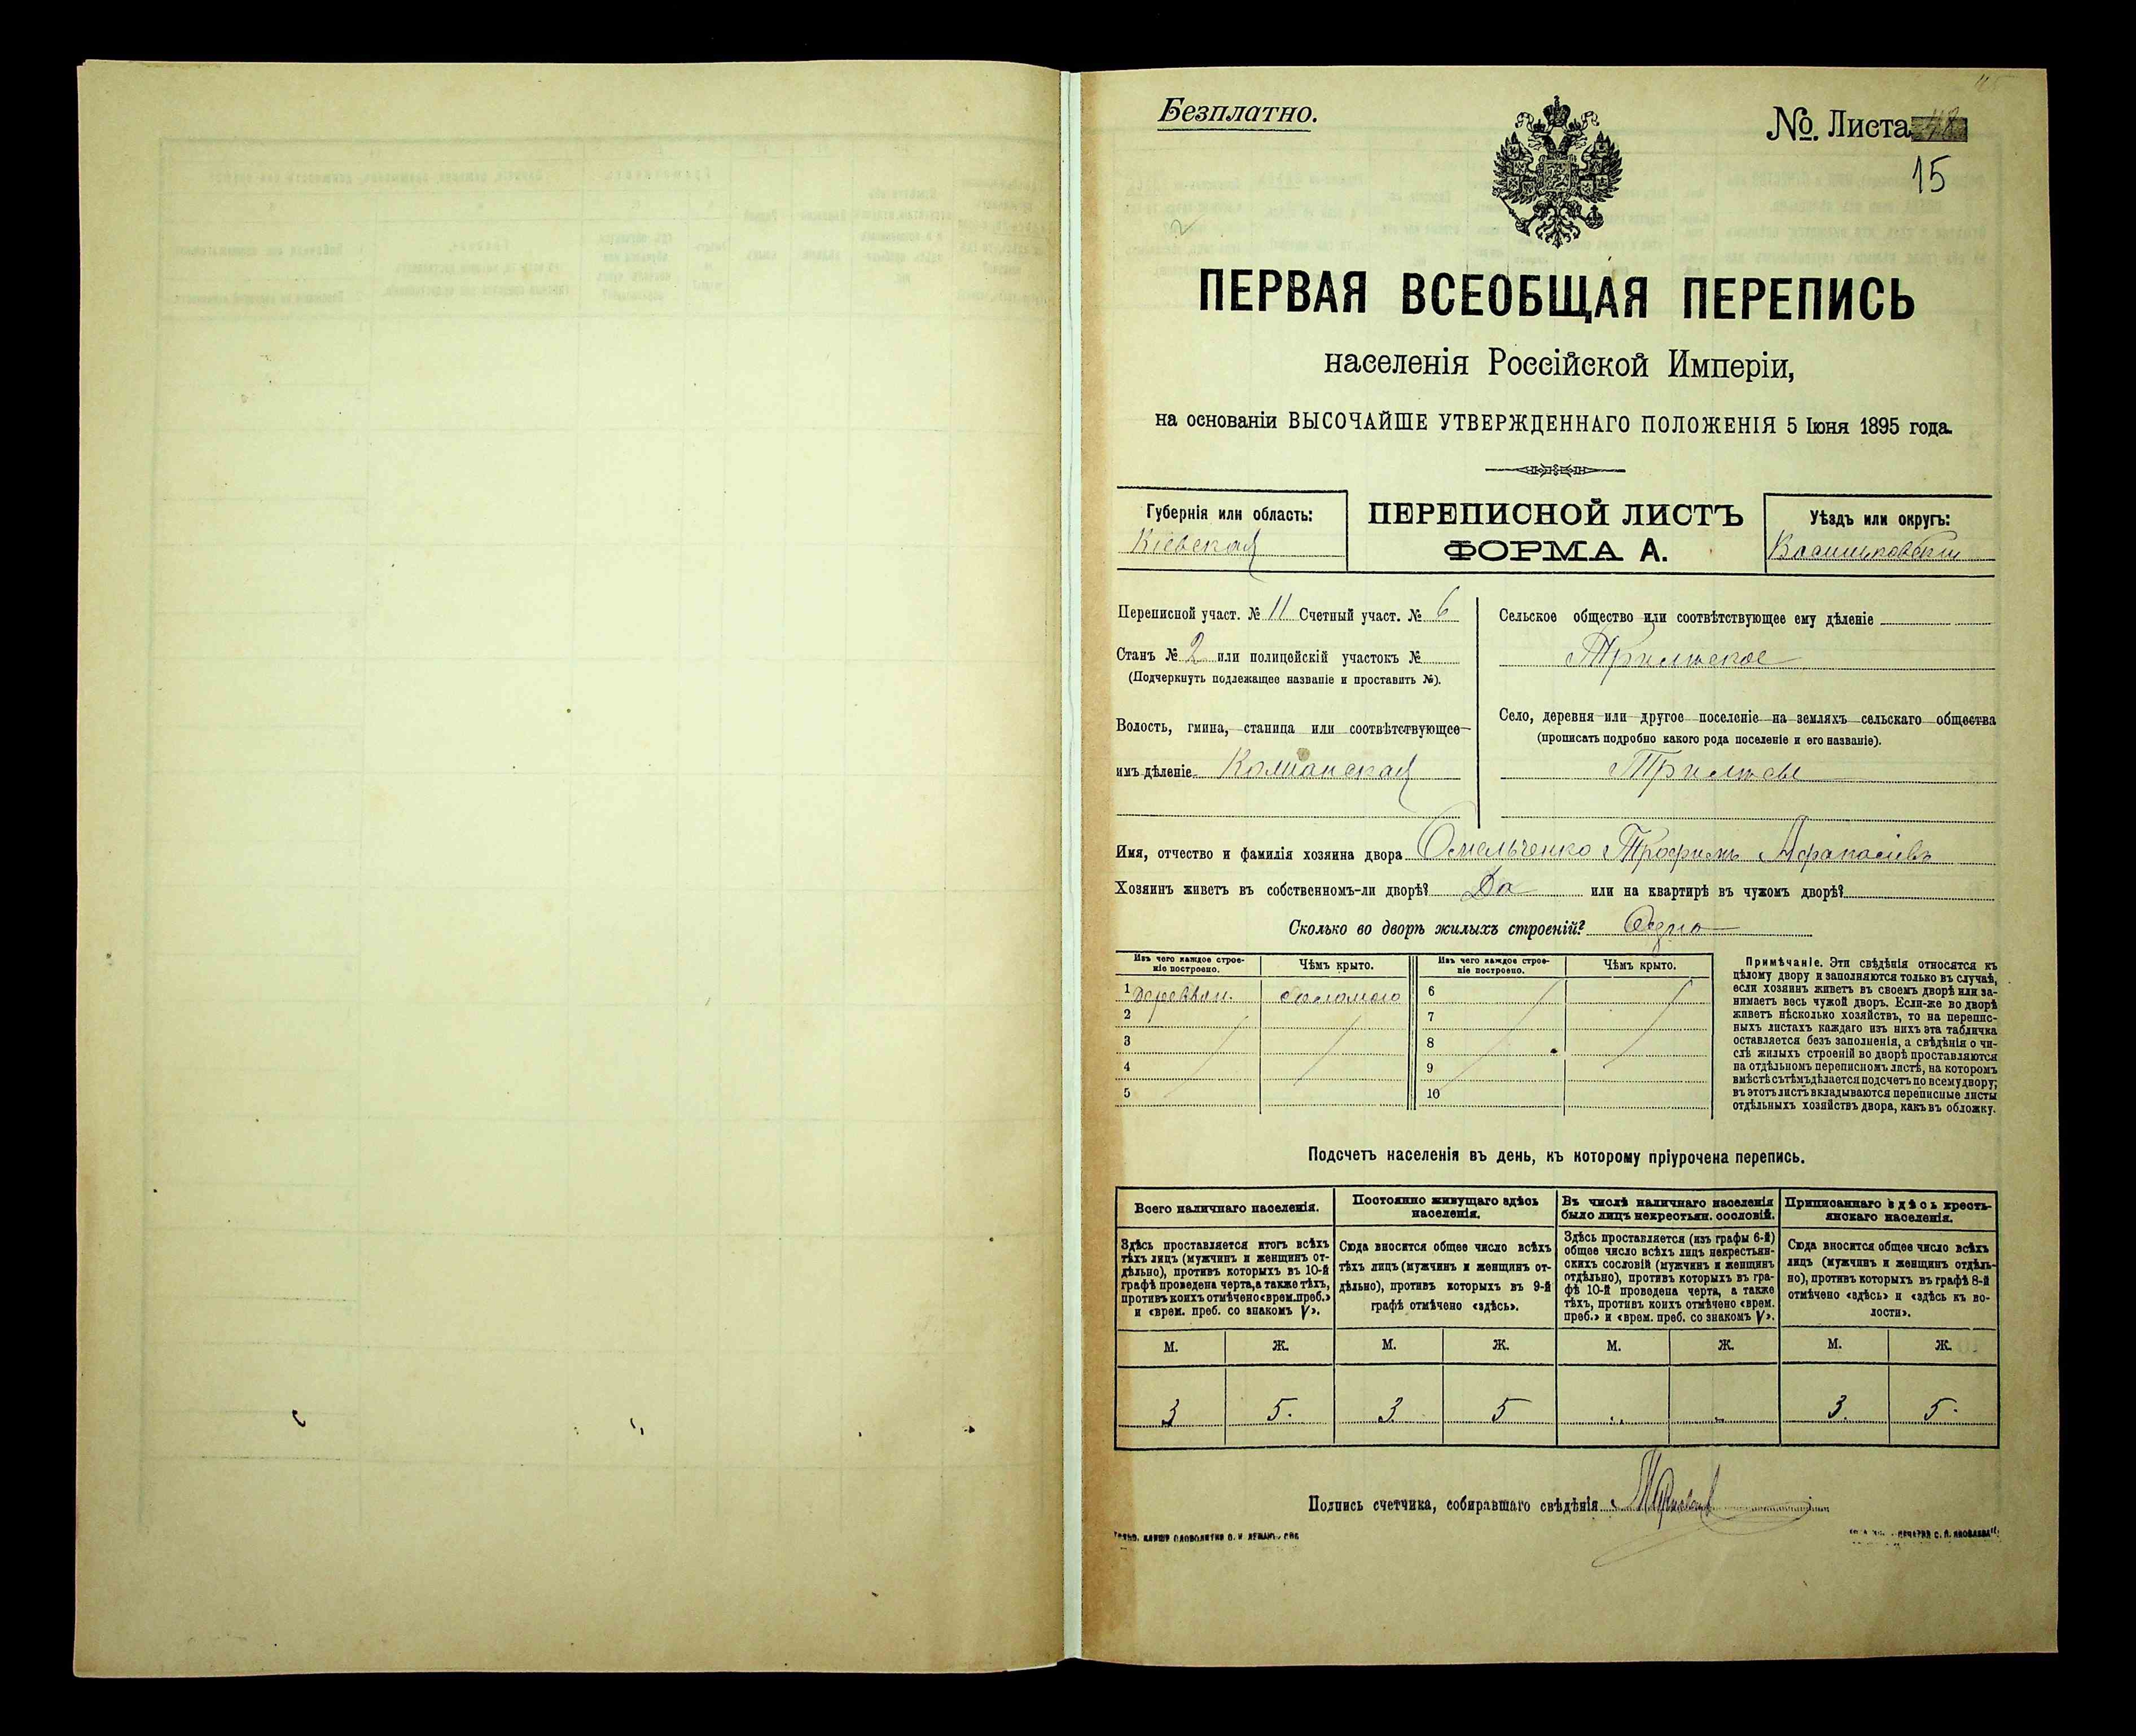 Безплатно.
№ Листа
15
2
ПЕРВАЯ ВСЕОБЩАЯ ПЕРЕПИСЬ
населенія Россійской Имперіи,
на основаніи ВЫСОЧАЙШЕ УТВЕРЖДЕННАГО ПОЛОЖЕНІЯ 5 Іюня 1895 года.
Губернія или область:
Кіевская
ПЕРЕПИСНОЙ ЛИСТЪ
ФОРМА А.
Уѣздъ или округъ:
Переписной участ. № 11 Счетный участ. № 6
Станъ № 2 или полицейскій участокъ №
(Подчеркнуть подлежащее названіе и проставить №).
Волость, гмина, станица или соотвѣтствующее
имъ дѣленіе
Сельское общество или соотвѣтствующее ему дѣленіе
Трилѣсское
Село, деревня или другое поселеніе на земляхъ сельскаго общества
(прописать подробно какого рода поселеніе и его названіе).
Трилѣсы
Имя, отчество и фамилія хозяина двора Омельченко Трофимъ Афанасіевъ
Хозяинъ живетъ въ собственномъ-ли дворѣ? Да или на квартирѣ въ чужомъ дворѣ?
Сколько во дворѣ жилыхъ строеній? Одно
Изъ чего каждое строе-
ніе построено.
Чѣмъ крыто.
Изъ чего каждое строе-
ніе построено.
Чѣмъ крыто.
1 Деревян. соломою 6
2 7
3 8
4 9
5 10
Примѣчаніе. Эти свѣдѣнія относятся къ
цѣлому двору и заполняются только въ случаѣ,
если хозяинъ живетъ въ своемъ дворѣ или за-
нимаетъ весь чужой дворъ. Если-же во дворѣ
живетъ нѣсколько хозяйствъ, то на перепис-
ныхъ листахъ каждаго изъ нихъ эта табличка
оставляется безъ заполненія, а свѣдѣнія о чи-
слѣ жилыхъ строеній во дворѣ проставляются
на отдѣльномъ переписномъ листѣ, на которомъ
вмѣстѣ съ тѣмъ дѣлается подсчетъ по всему двору;
въ этотъ листъ вкладываются переписные листы
отдѣльныхъ хозяйствъ двора, какъ въ обложку.
Подсчетъ населенія въ день, къ которому пріурочена перепись.
Всего наличнаго населенія.
Здѣсь проставляется итогъ всѣхъ
тѣхъ лицъ (мужчинъ и женщинъ от-
дѣльно), противъ которыхъ въ 10-й
графѣ проведена черта, а также тѣхъ,
противъ коихъ отмѣчено «врем. преб.»
и «врем. преб. со знакомъ V».
Постоянно живущаго здѣсь
населенія.
Сюда вносится общее число всѣхъ
тѣхъ лицъ (мужчинъ и женщинъ от-
дѣльно), противъ которыхъ въ 9-й
графѣ отмѣчено «здѣсь».
Въ числѣ наличнаго населенія
было лицъ некрестьян. сословій.
Здѣсь проставляется (изъ графы 6-й)
общее число всѣхъ лицъ некрестьян-
скихъ сословій (мужчинъ и женщинъ
отдѣльно), противъ которыхъ въ гра-
фѣ 10-й проведена черта, а также
тѣхъ, противъ коихъ отмѣчено «врем.
преб.» и «врем. преб. со знакомъ V».
Приписаннаго здѣсь кресть-
янскаго населенія.
Сюда вносится общее число всѣхъ
лицъ (мужчинъ и женщинъ отдѣль-
но), противъ которыхъ въ графѣ 8-й
отмѣчено «здѣсь» и «здѣсь къ во-
лости».
М. Ж. М. Ж. М. Ж. М. Ж.
3 5. 3 5 3. 5.
Подпись счетчика, собиравшаго свѣдѣнія